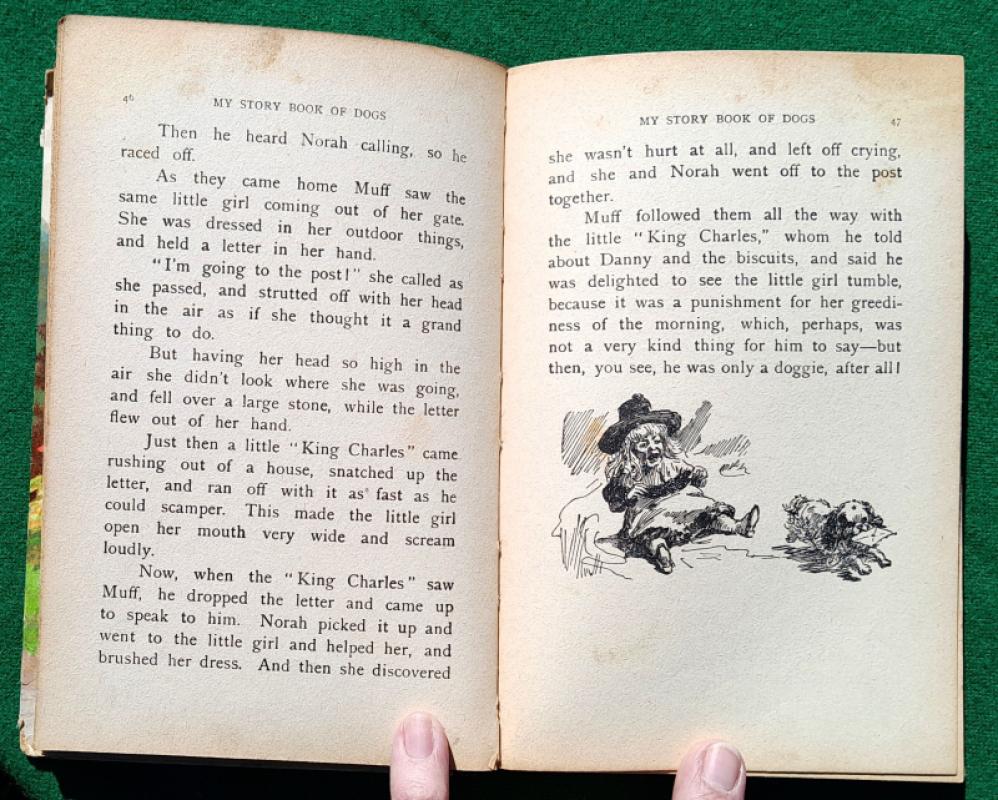 46
MY STORY BOOK OF DOGS
Then he heard Norah calling, so he
raced off.
As they came home Muff saw the
same little girl coming out of her gate.
She was dressed in her outdoor things,
and held a letter in her hand.
"I'm going to the post!" she called as
she passed, and strutted off with her head
in the air as if she thought it a grand
thing to do.
But having her head so high in the
air she didn't look where she was going,
and fell over a large stone, while the letter
flew out of her hand.
Just then a little "King Charles" came
rushing out of a house, snatched up the
letter, and ran off with it as fast as he
could scamper. This made the little girl
open her mouth very wide and scream
loudly.
Now, when the "King Charles" saw
Muff, he dropped the letter and came up
to speak to him. Norah picked it up and
went to the little girl and helped her, and
brushed her dress. And then she discovered
MY STORY BOOK OF DOGS
47
she wasn't hurt at all, and left off crying,
and she and Norah went off to the post
together.
Muff followed them all the way with
the little "King Charles," whom he told
about Danny and the biscuits, and said he
was delighted to see the little girl tumble,
because it was a punishment for her greedi-
ness of the morning, which, perhaps, was
not a very kind thing for him to say—but
then, you see, he was only a doggie, after all!